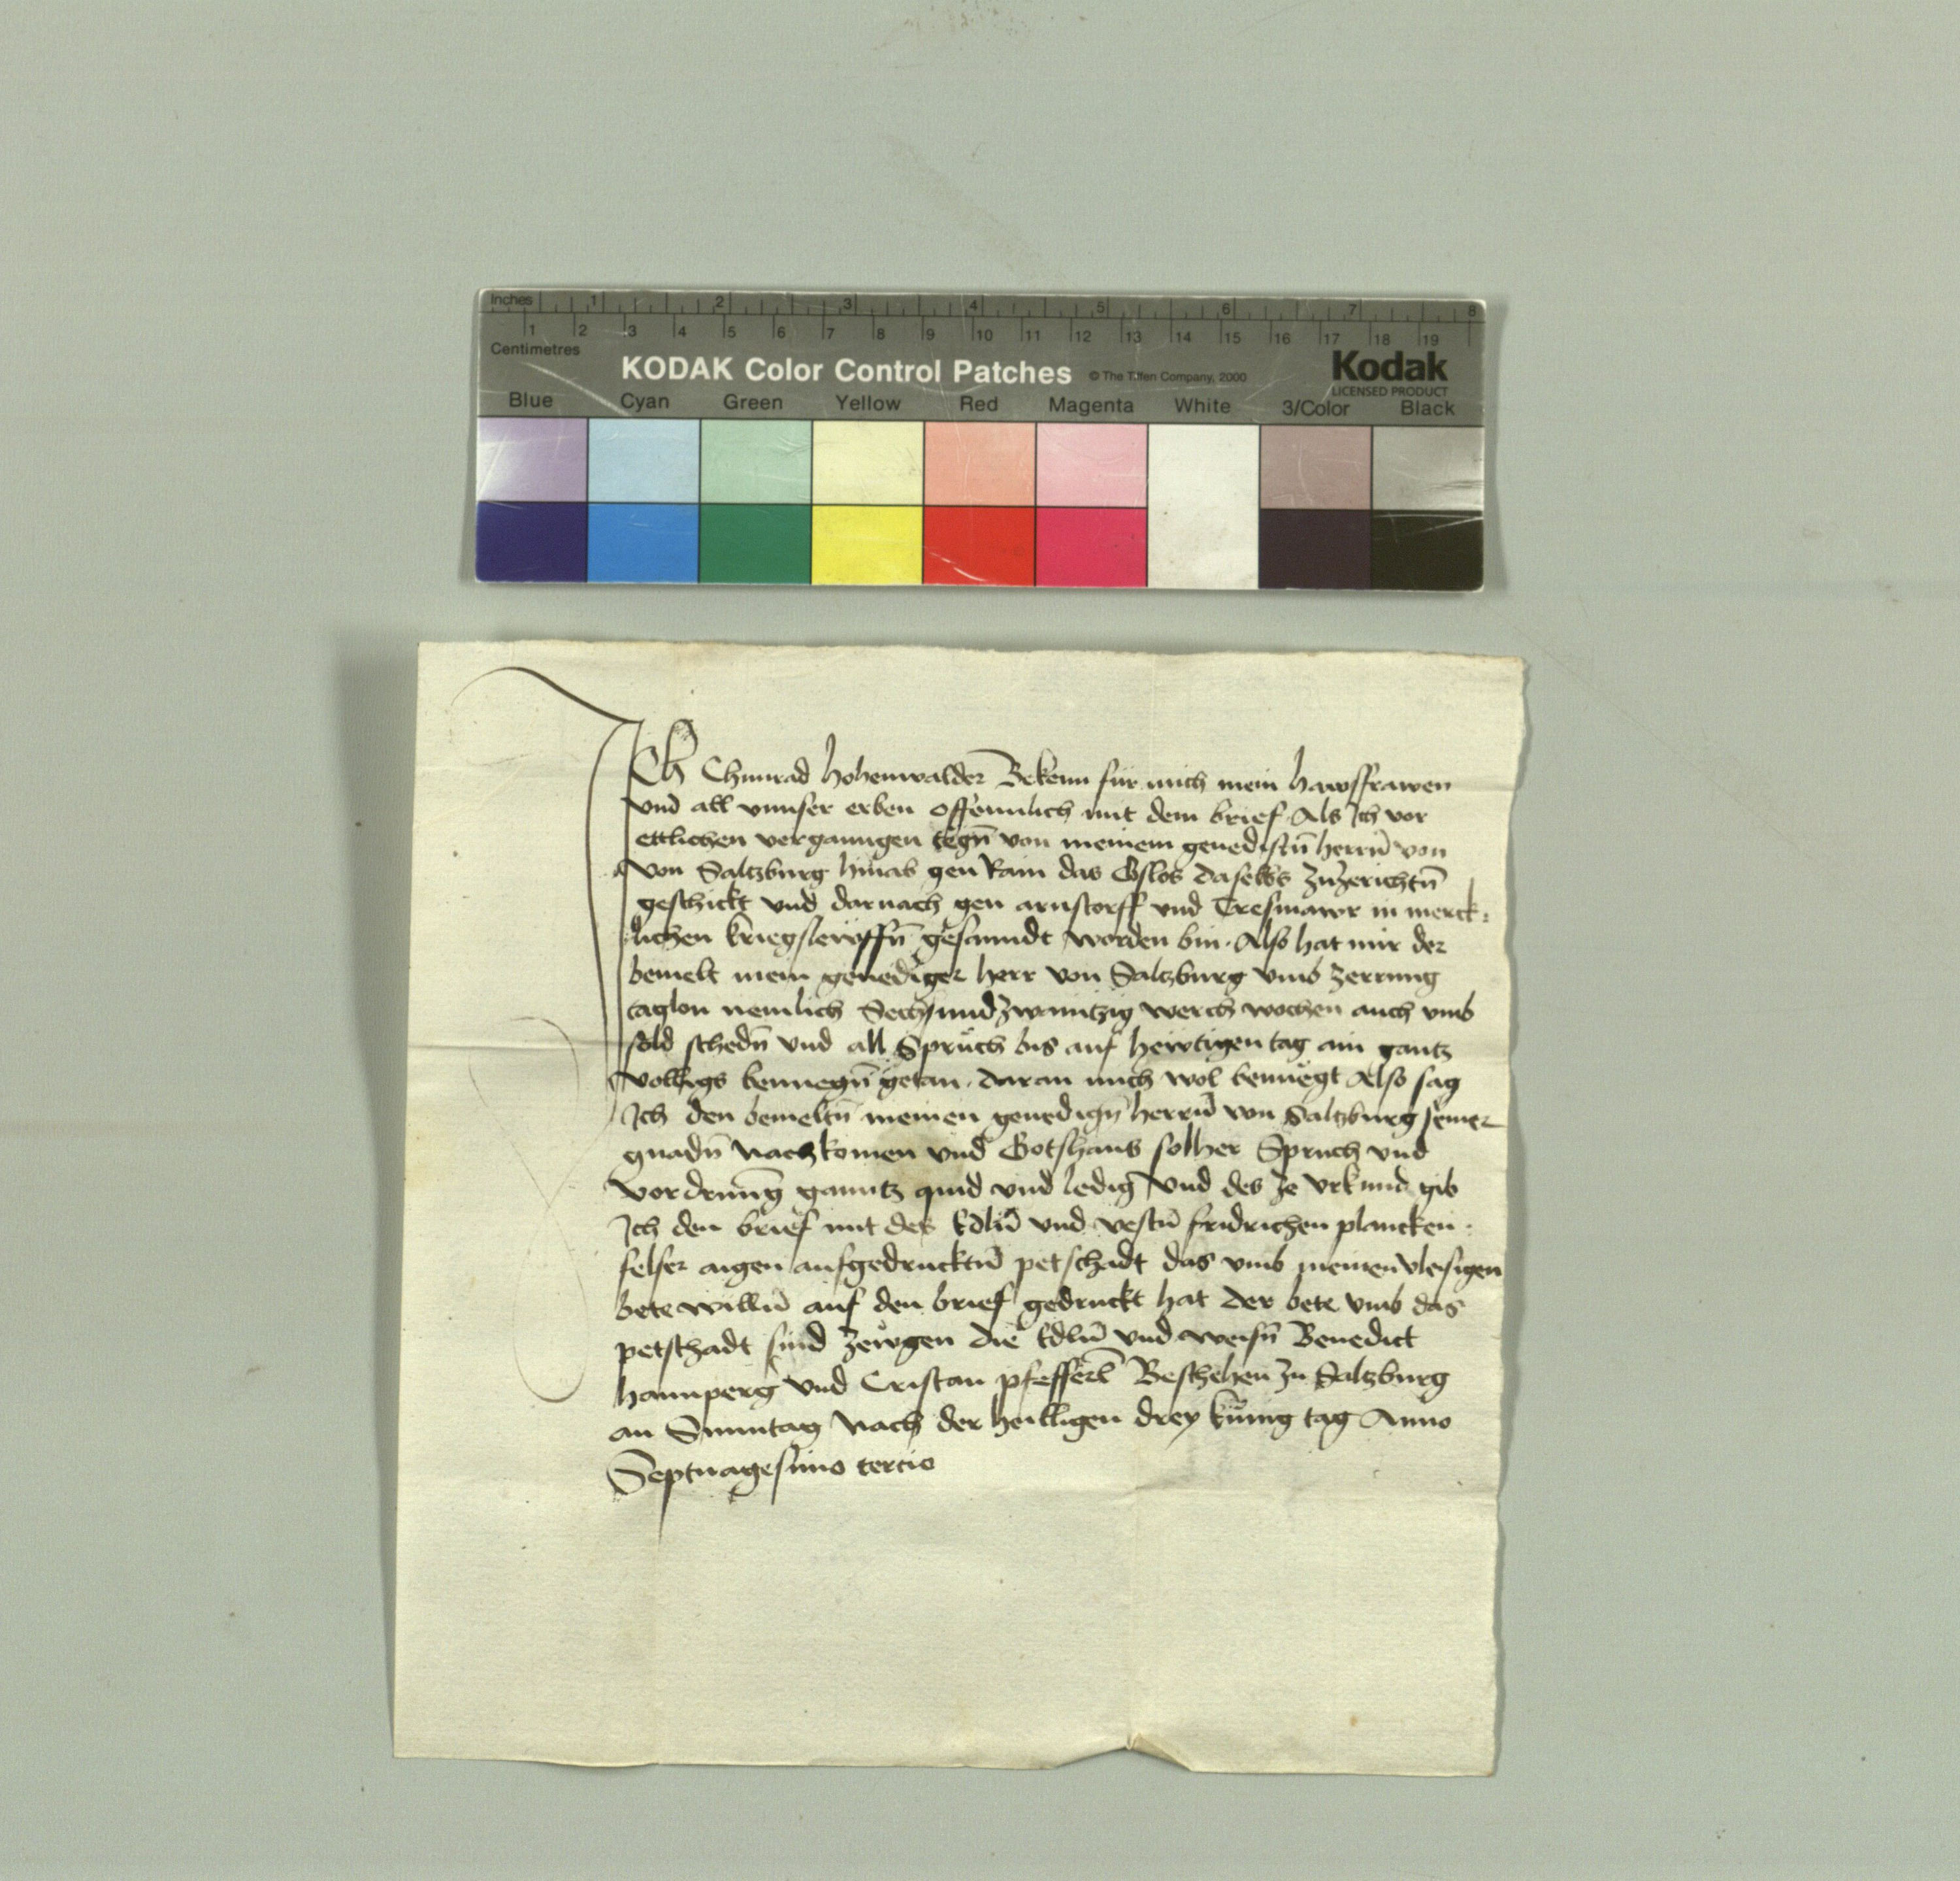 Inches 1 2 3 4 5 6 7 8
1 2 3 4 5 6 7 8 9 10 11 12 13 14 15 16 17 18 19
Centimetres
KODAK Color Control Patches © The Tiffen Company, 2000 Kodak
LICENSED PRODUCT
Blue Cyan Green Yellow Red Magenta White 3/Color Black
Ich Chunrad Hohenwalder Bekenn für mich mein hawsfrawen
vnd all vnnser erben offennlich mit dem brief Als Ich vor
ettlichen verganngen tegn̄ von meinem genedistn̄ herrn̄ von
von Saltzburg hinab gen Rain das Gslos daselbs zuzerichtn̄
geschickt vnd darnach gen arnstorff vnd Tresmawr in merck=
lichen kriegslewffn̄ gesanndt worden bin. Also hat mir der
bemelt mein genediger herr von Saltzburg vmb zerrung
taglon nemlich Sechsundzwaintzig werch wochen auch vmb
sold schedn̄ vnd all Sprüch bis auf hewtigen tag ain gantz
volligs benuegn̄ getan. daran mich wol benuegt Also sag
Ich den bemeltn̄ meinen genedign̄ herrn̄ von Saltzburg seiner
gnadn̄ nachkomen vnd Gotshaus solher Spruch vnd
vordrung ganntz quid vnd ledig Vnd des ze vrkund gib
Ich den brief mit des Edln̄ vnd vestn̄ fridrichen plancken=
felser aigen aufgedrucktn̄ petschadt das vmb meinen vleisigen
bete willn̄ auf den brief gedruckt hat Der bete vmb das
petschadt sind zewgen die Edln̄ vnd weisn̄ Benedict
hannperg vnd Cristan pfefferl Beschehen zu Saltzburg
an Sunntag Nach der heilligen drey künig tag Anno
Septuagesimo tercio